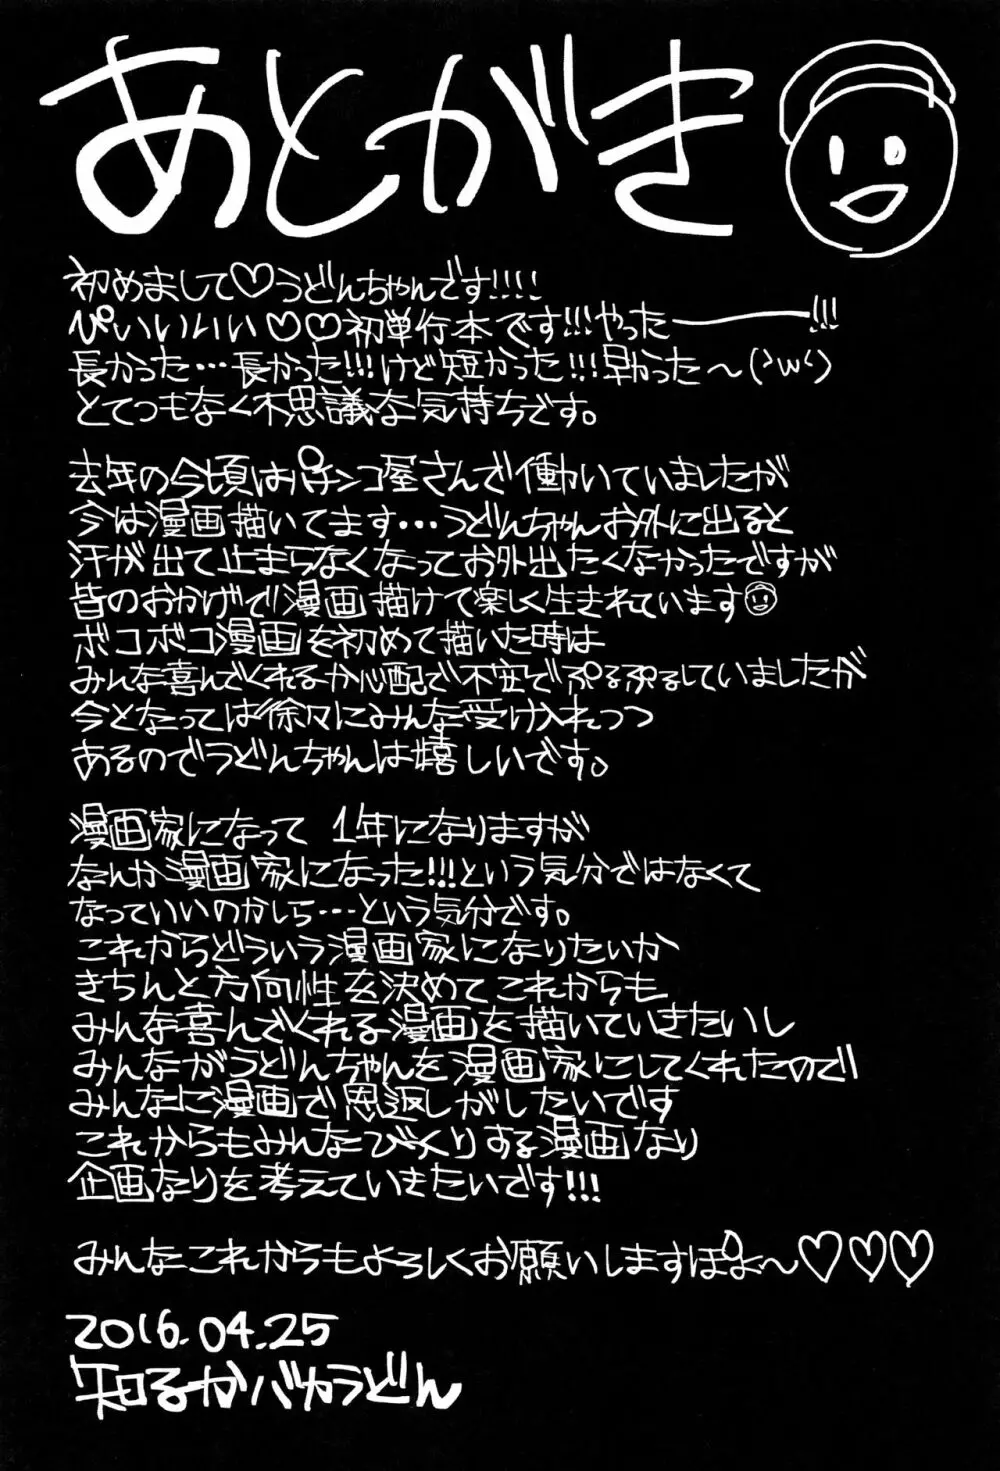 あとがき
初めまして♡うどんちゃんです!!!!
ぴぃいいいい♡♡初単行本です!!!やったーーー!!!
長かった…長かった!!!けど短かった!!!早かった～('ω')
とてつもなく不思議な気持ちです。
去年の今頃はパチンコ屋さんで働いていましたが
今は漫画描いてます…うどんちゃんお外に出ると
汗が出て止まらなくなってお外出たくなかったですが
皆のおかげで漫画描けて楽しく生きれています
ボコボコ漫画を初めて描いた時は
みんな喜んでくれるか心配で不安でぷるぷるしていましたが
今となっては徐々にみんな受け入れつつ
あるのでうどんちゃんは嬉しいです。
漫画家になって 1年になりますが
なんか漫画家になった!!!という気分ではなくて
なっていいのかしら…という気分です。
これからどういう漫画家になりたいか
きちんと方向性を決めてこれからも
みんな喜んでくれる漫画を描いていきたいし
みんながうどんちゃんを漫画家にしてくれたので
みんなに漫画で恩返しがしたいです
これからもみんなびっくりする漫画なり
企画なりを考えていきたいです!!!
みんなこれからもよろしくお願いしますぽよ～♡♡♡
2016.04.25
知るかバカうどん